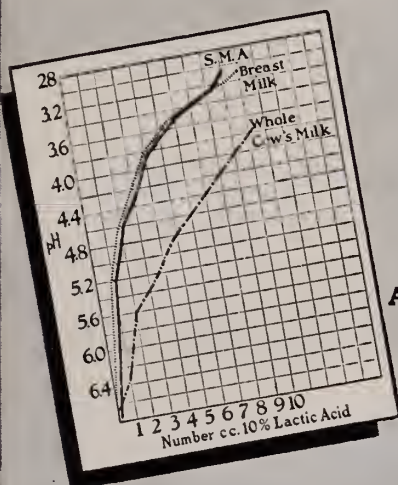 S.M.A
Breast
Milk
Whole
Cow's Milk
28
3.2
3.6
4.0
4.4
pH
4.8
5.2
5.6
6.0
6.4
1 2 3 4 5 6 7 8 9 10
Number c.c. 10% Lactic Acid
A